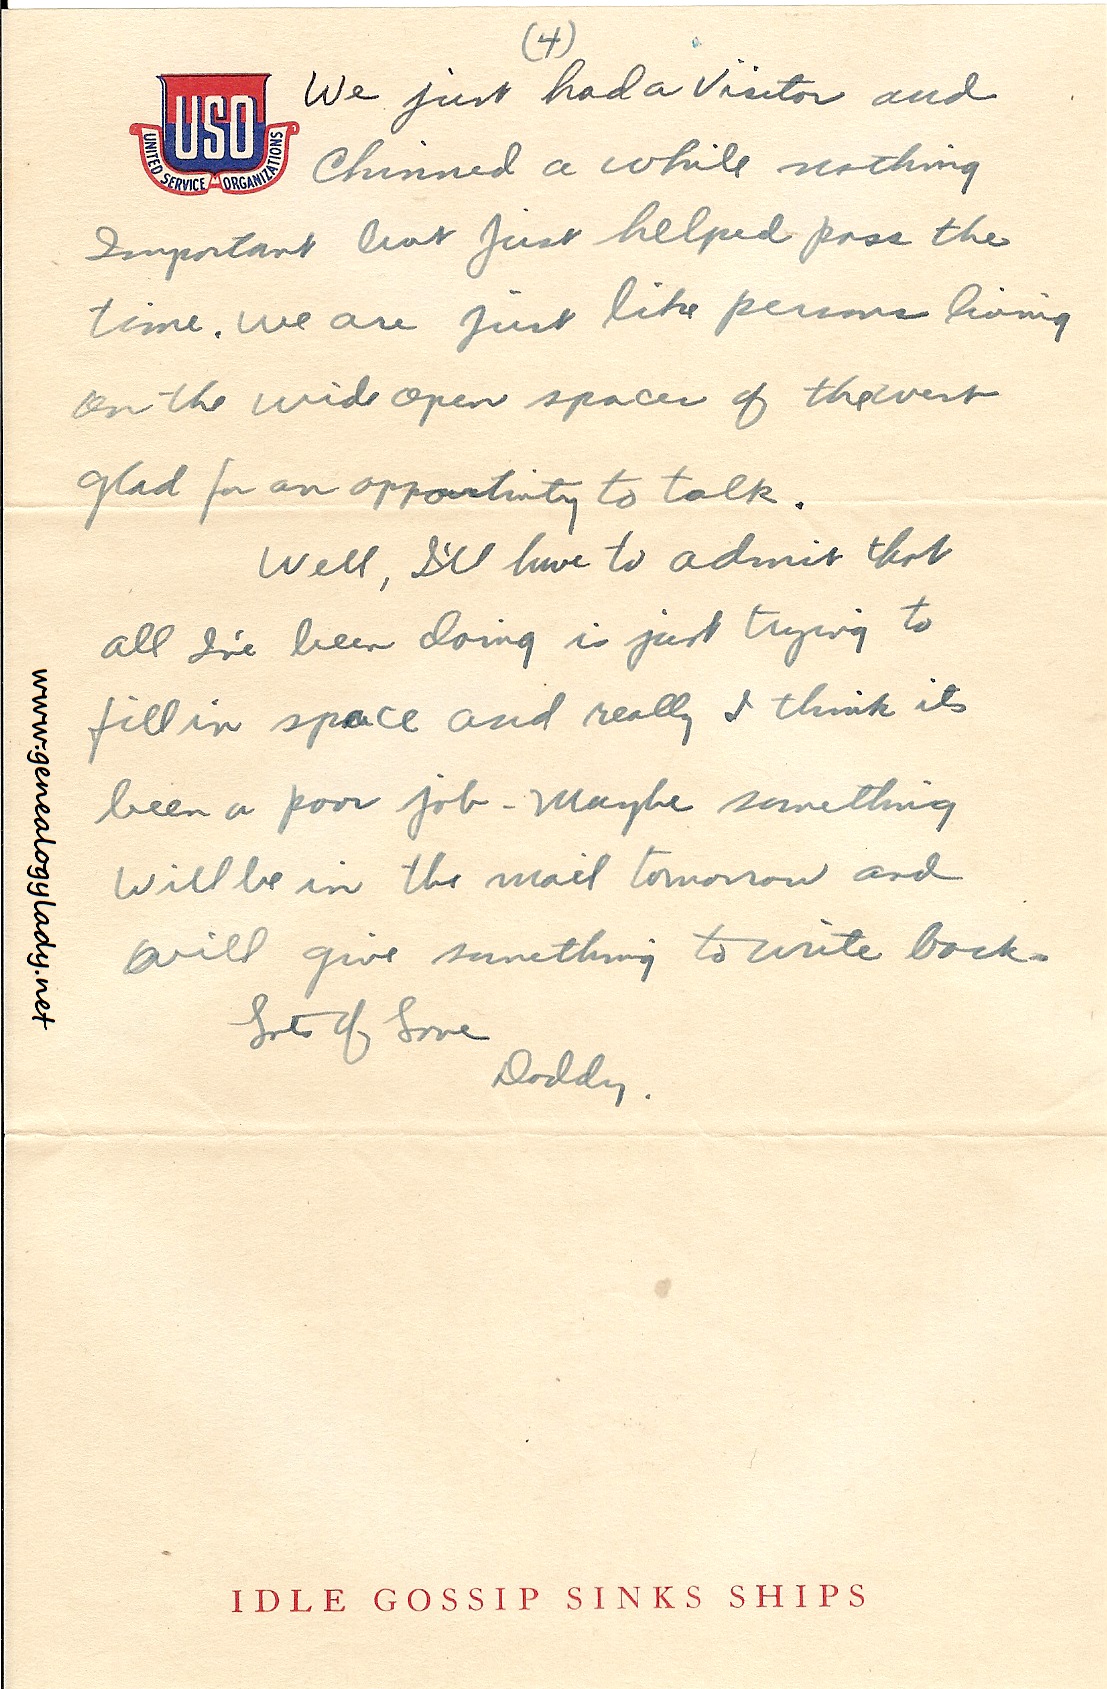 (4)
USO
UNITED SERVICE ORGANIZATIONS
We just had a Visitor and
Chinned a while nothing
Important but just helped pass the
time. We are just like persons living
on the wide open spaces of the west
glad for an opportunity to talk.
Well, I'll have to admit that
all I've been doing is just trying to
fill in space and really I think its
been a poor job - Maybe something
will be in the mail tomorrow and
will give something to write back.
Lots of Love
Daddy.
www.genealogylady.net
IDLE GOSSIP SINKS SHIPS